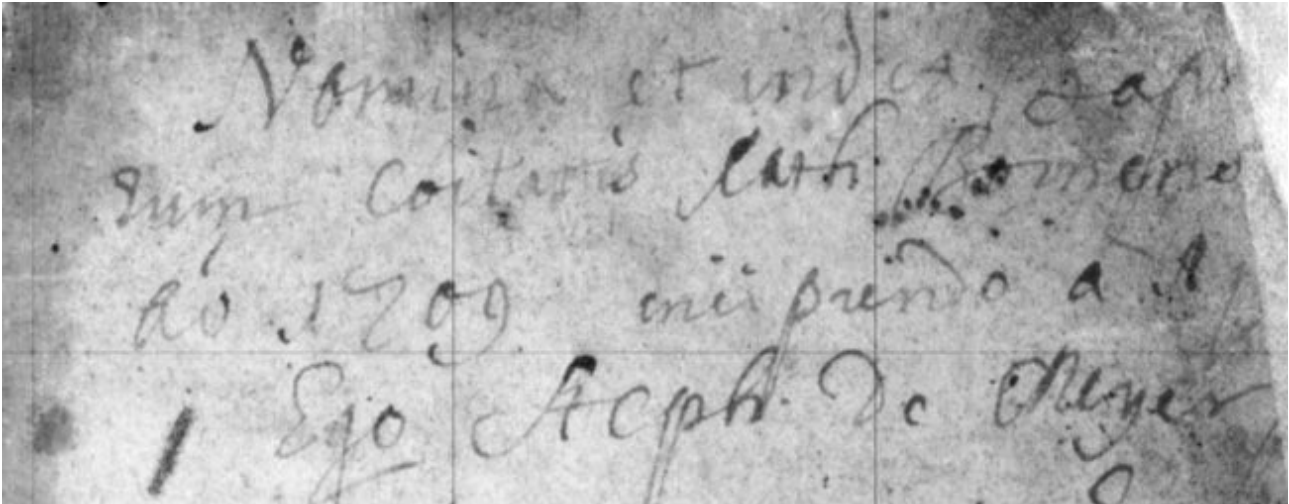 Nomina et indicta
rum Coitatis Cath: Romano
ao 1709 incipiendo à
1 Ego Steph: De Meyer